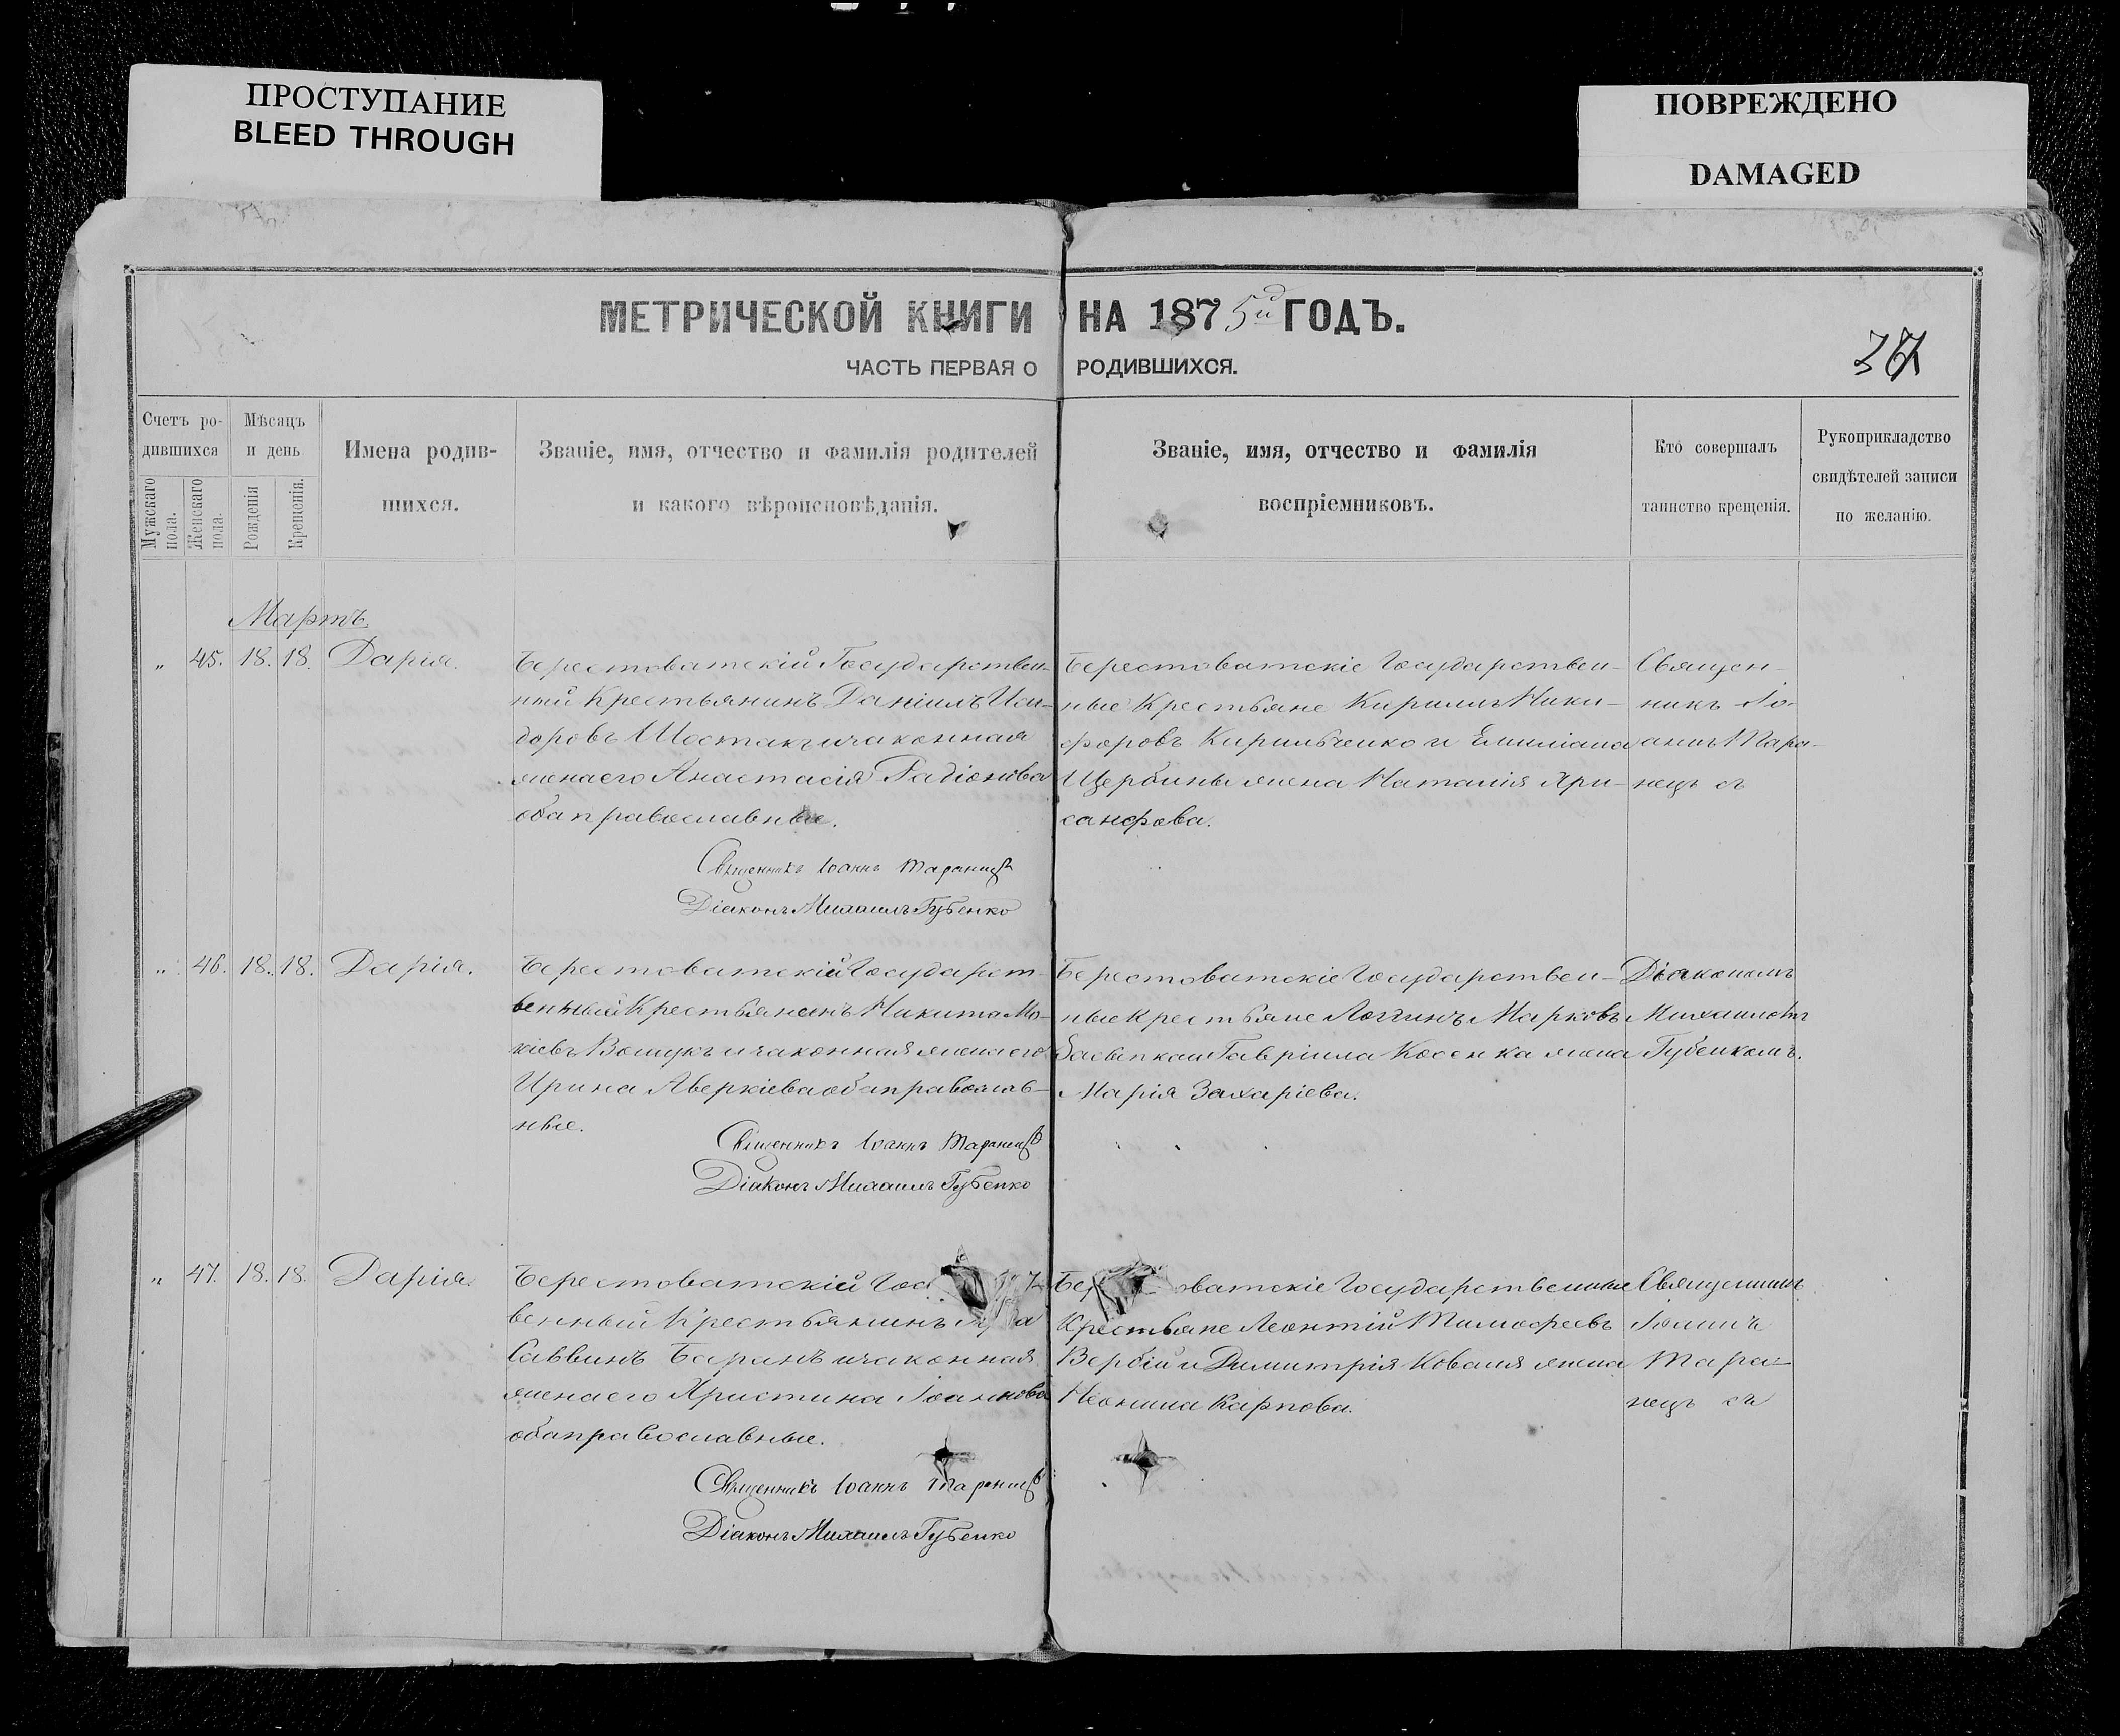 ПРОСТУПАНИЕ
BLEED THROUGH
ПОВРЕЖДЕНО
DAMAGED
МЕТРИЧЕСКОЙ КНИГИ НА 1875й ГОДЪ.
ЧАСТЬ ПЕРВАЯ О РОДИВШИХСЯ.
Счетъ ро-
дившихся
Мужскаго пола.
Женскаго пола.
Мѣсяцъ
и день
Рожденія
Крещенія.
Имена родив-
шихся.
Званіе, имя, отчество и фамилія родителей
и какого вѣроисповѣданія.
Званіе, имя, отчество и фамилія
воспріемниковъ.
Кто совершалъ
таинство крещенія.
Рукоприкладство
свидѣтелей записи
по желанію.
Мартъ.
„ 45. 18. 18. Дарія.
Берестоватскій Государствен-
ный Крестьянинъ Даніилъ Иси-
доровъ Шостакъ и законная
жена его Анастасія Радіонова
оба православные.
Священникъ Іоаннъ Таранецъ
Діаконъ Михаилъ Губенко
Берестоватскіе Государствен-
ные Крестьяне Кириллъ Ники-
форовъ Кирильченко и Емиліана
Щербины жена Наталія Хри-
санфова.
Священ-
никъ Іо-
аннъ Тара-
нецъ съ
„ 46. 18. 18. Дарія.
Берестоватскій Государст-
венный Крестьянинъ Никита Мо-
кіевъ Вощукъ и законная жена его
Ирина Аверкіева оба православ-
ные.
Священникъ Іоаннъ Таранецъ
Діаконъ Михаилъ Губенко
Берестоватскіе Государствен-
ные Крестьяне Логгинъ Марковъ
Гавріила Косенка жена
Марія Захаріева.
Діакономъ
Михаиломъ
Губенкомъ.
„ 47. 18. 18. Дарія.
Берестоватскій Гос
венный Крестьянинъ
Саввинъ Баранъ и законная
жена его Христина Іоаннова
оба православные.
Священникъ Іоаннъ Таранецъ
Діаконъ Михаилъ Губенко
Бер оватскіе Государственные
Крестьяне Леонтій Тимофеевъ
Вербій и Димитрія Коваля жена
Неонила Карпова.
Священникъ
Іоаннъ
Тара-
нецъ съ